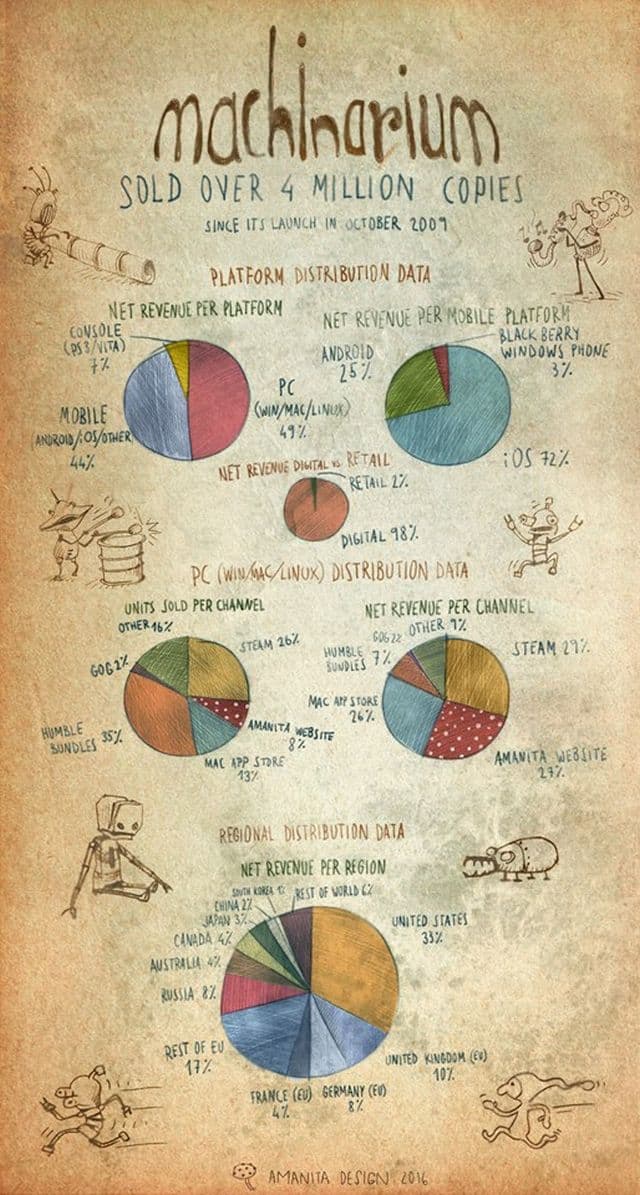 machinarium
SOLD OVER 4 MILLION COPIES
SINCE ITS LAUNCH IN OCTOBER 2009
PLATFORM DISTRIBUTION DATA
NET REVENUE PER PLATFORM
CONSOLE
(PS3/VITA)
7%
PC
(WIN/MAC/LINUX)
49%
MOBILE
(ANDROID/iOS/OTHER
44%
NET REVENUE PER MOBILE PLATFORM
BLACK BERRY
WINDOWS PHONE
3%
ANDROID
25%
iOS 72%
NET REVENUE DIGITAL vs. RETAIL
RETAIL 2%
DIGITAL 98%
PC (WIN/MAC/LINUX) DISTRIBUTION DATA
UNITS SOLD PER CHANNEL
OTHER 16%
STEAM 26%
GOG 2%
AMANITA WEBSITE
8%
HUMBLE
BUNDLES 35%
MAC APP STORE
13%
NET REVENUE PER CHANNEL
OTHER 9%
GOG 2%
STEAM 29%
HUMBLE
BUNDLES 7%
MAC APP STORE
26%
AMANITA WEBSITE
27%
REGIONAL DISTRIBUTION DATA
NET REVENUE PER REGION
SOUTH KOREA 1%
REST OF WORLD 6%
CHINA 2%
JAPAN 3%
UNITED STATES
33%
CANADA 4%
AUSTRALIA 4%
RUSSIA 8%
REST OF EU
17%
UNITED KINGDOM (EU)
10%
FRANCE (EU)
4%
GERMANY (EU)
8%
AMANITA DESIGN 2016